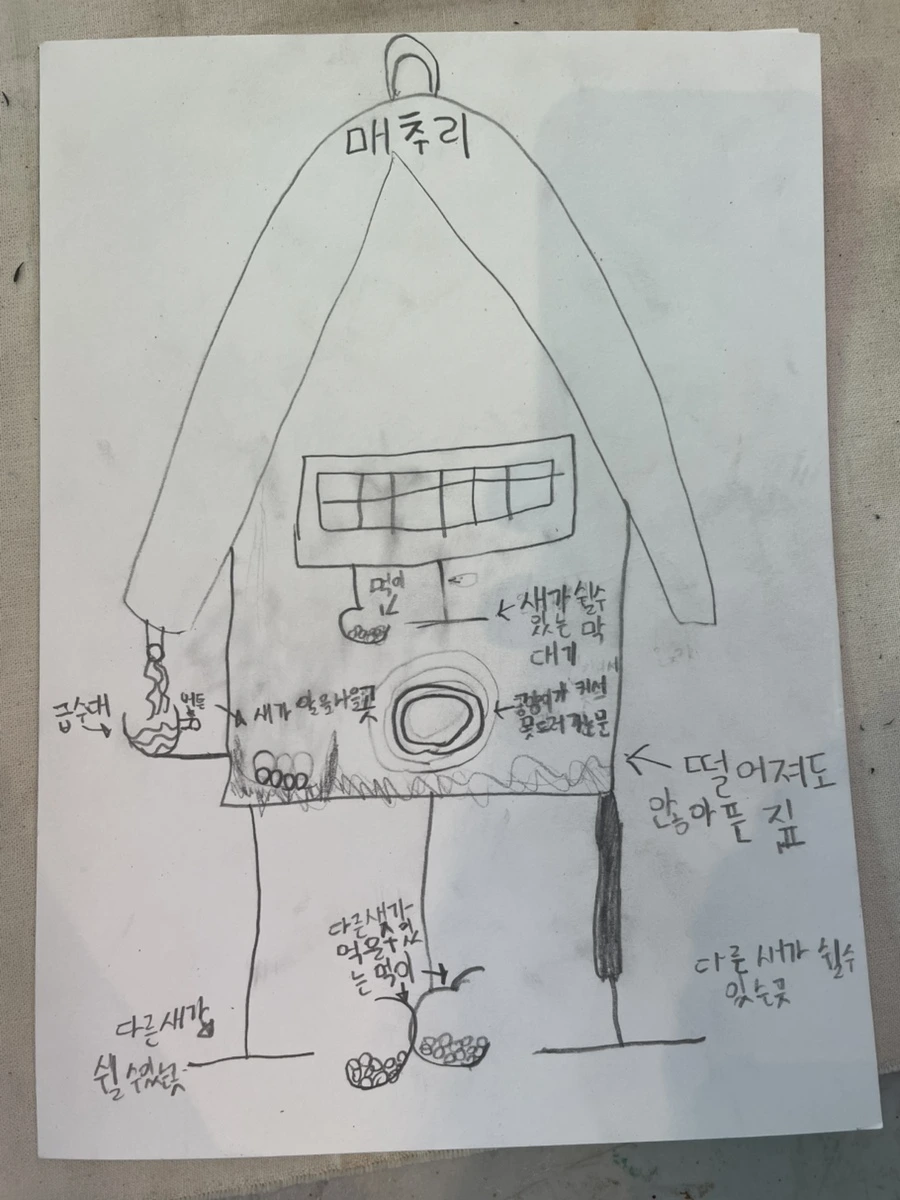 매추리
먹이
새가 쉴수
있는 막
대기
급수대
버튼
새가 알을나을곳
공룡이가 커서
못드러가는문
떨어져도
안아픈 짚
다른새가
먹을수있
는 먹이
다른 새가 쉴수
있는곳
다른새가
쉴 수있는곳